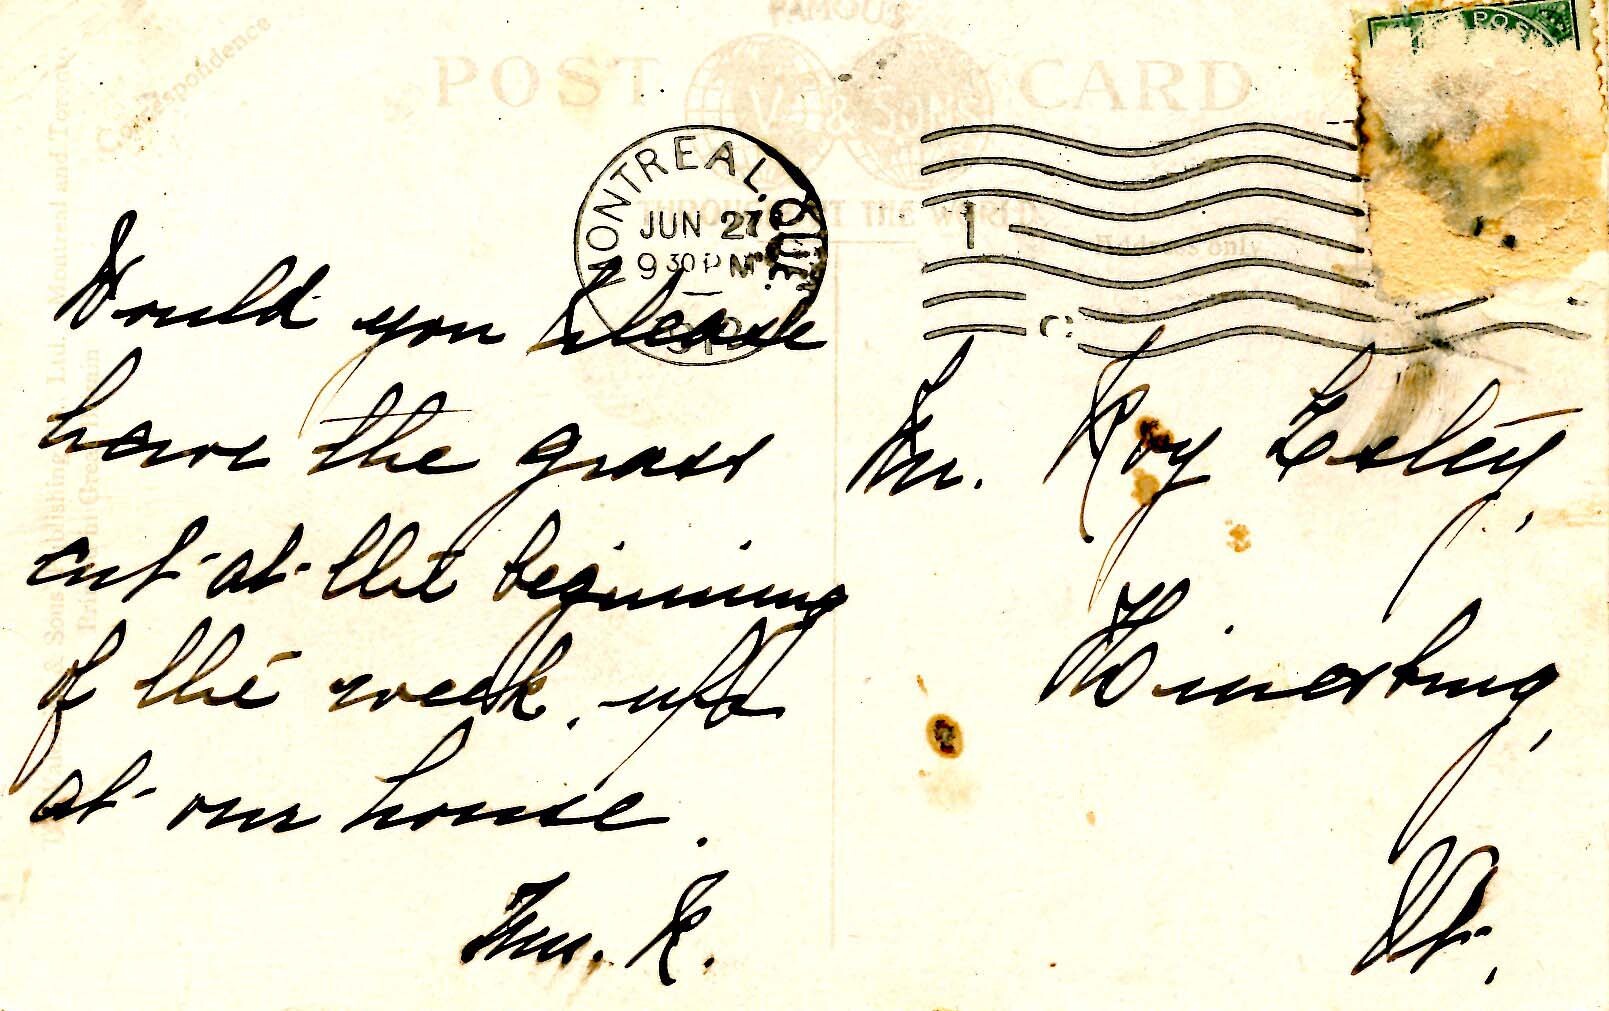 FAMOUS
POST CARD
& SONS
THROUGHOUT THE WORLD
Correspondence
Address only
& Sons Publishing Ltd., Montreal and Toronto
Printed in Great Britain
POST
MONTREAL, QUE.
JUN 27
9 30 PM
Would you please
have the grass
cut at the beginning
of the week, up
at our house.
Mrs. K.
Mr. Roy Estey,
Hinesburg,
Vt.